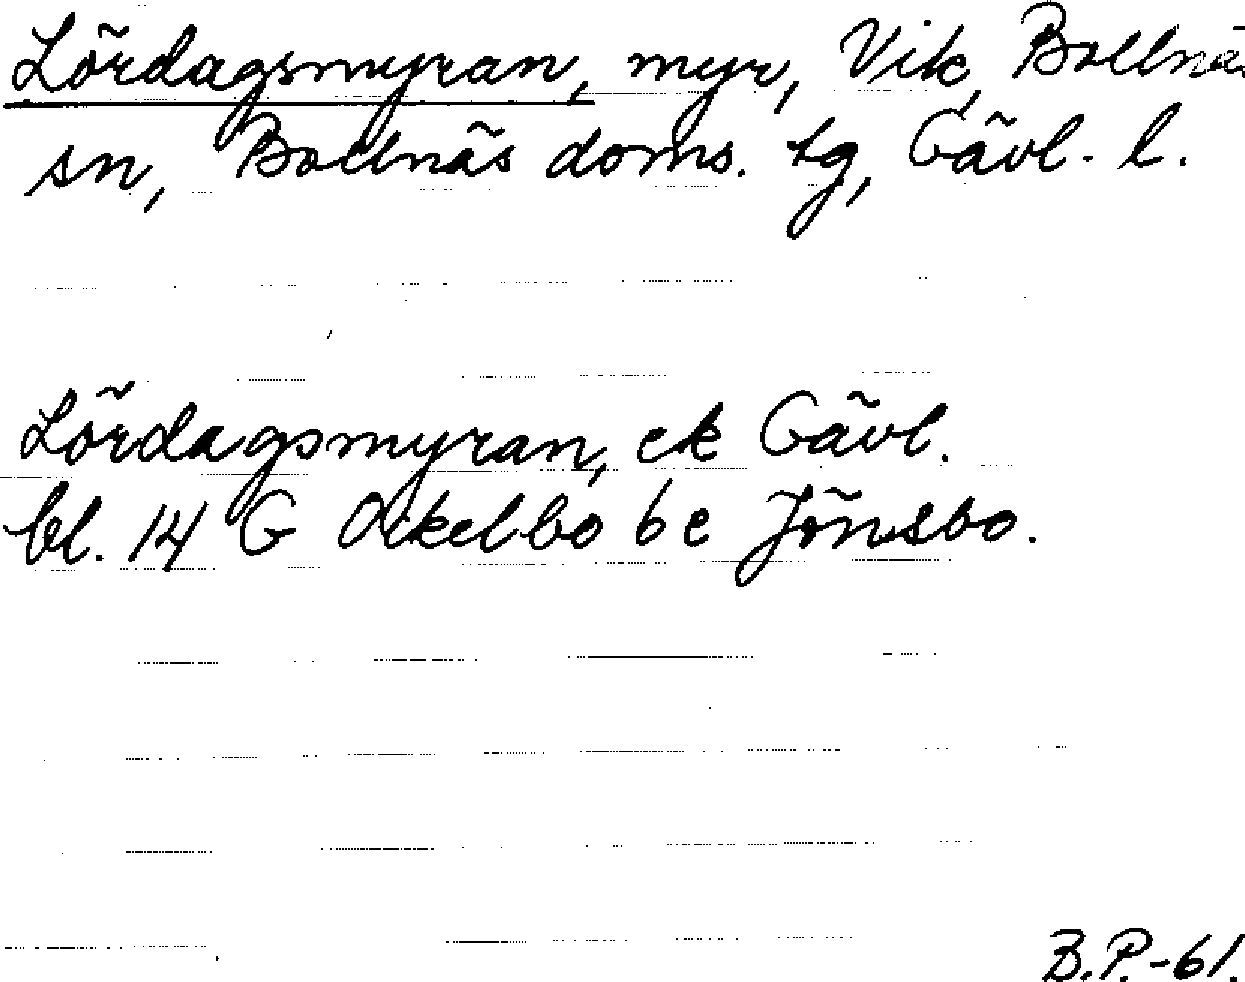 Lördagsmyran, myr, Vik, Bollnäs
sn, Bollnäs doms. tg, Gävl. l.
Lördagsmyran, ek Gävl.
bl. 14 G Ockelbo 6 e Jönsbo.
B.P.-61.